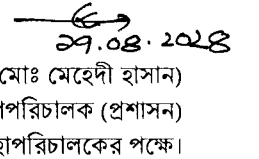 ২৭.০৪.২০২৪
মোঃ মেহেদী হাসান)
পপরিচালক (প্রশাসন)
হাপরিচালকের পক্ষে।